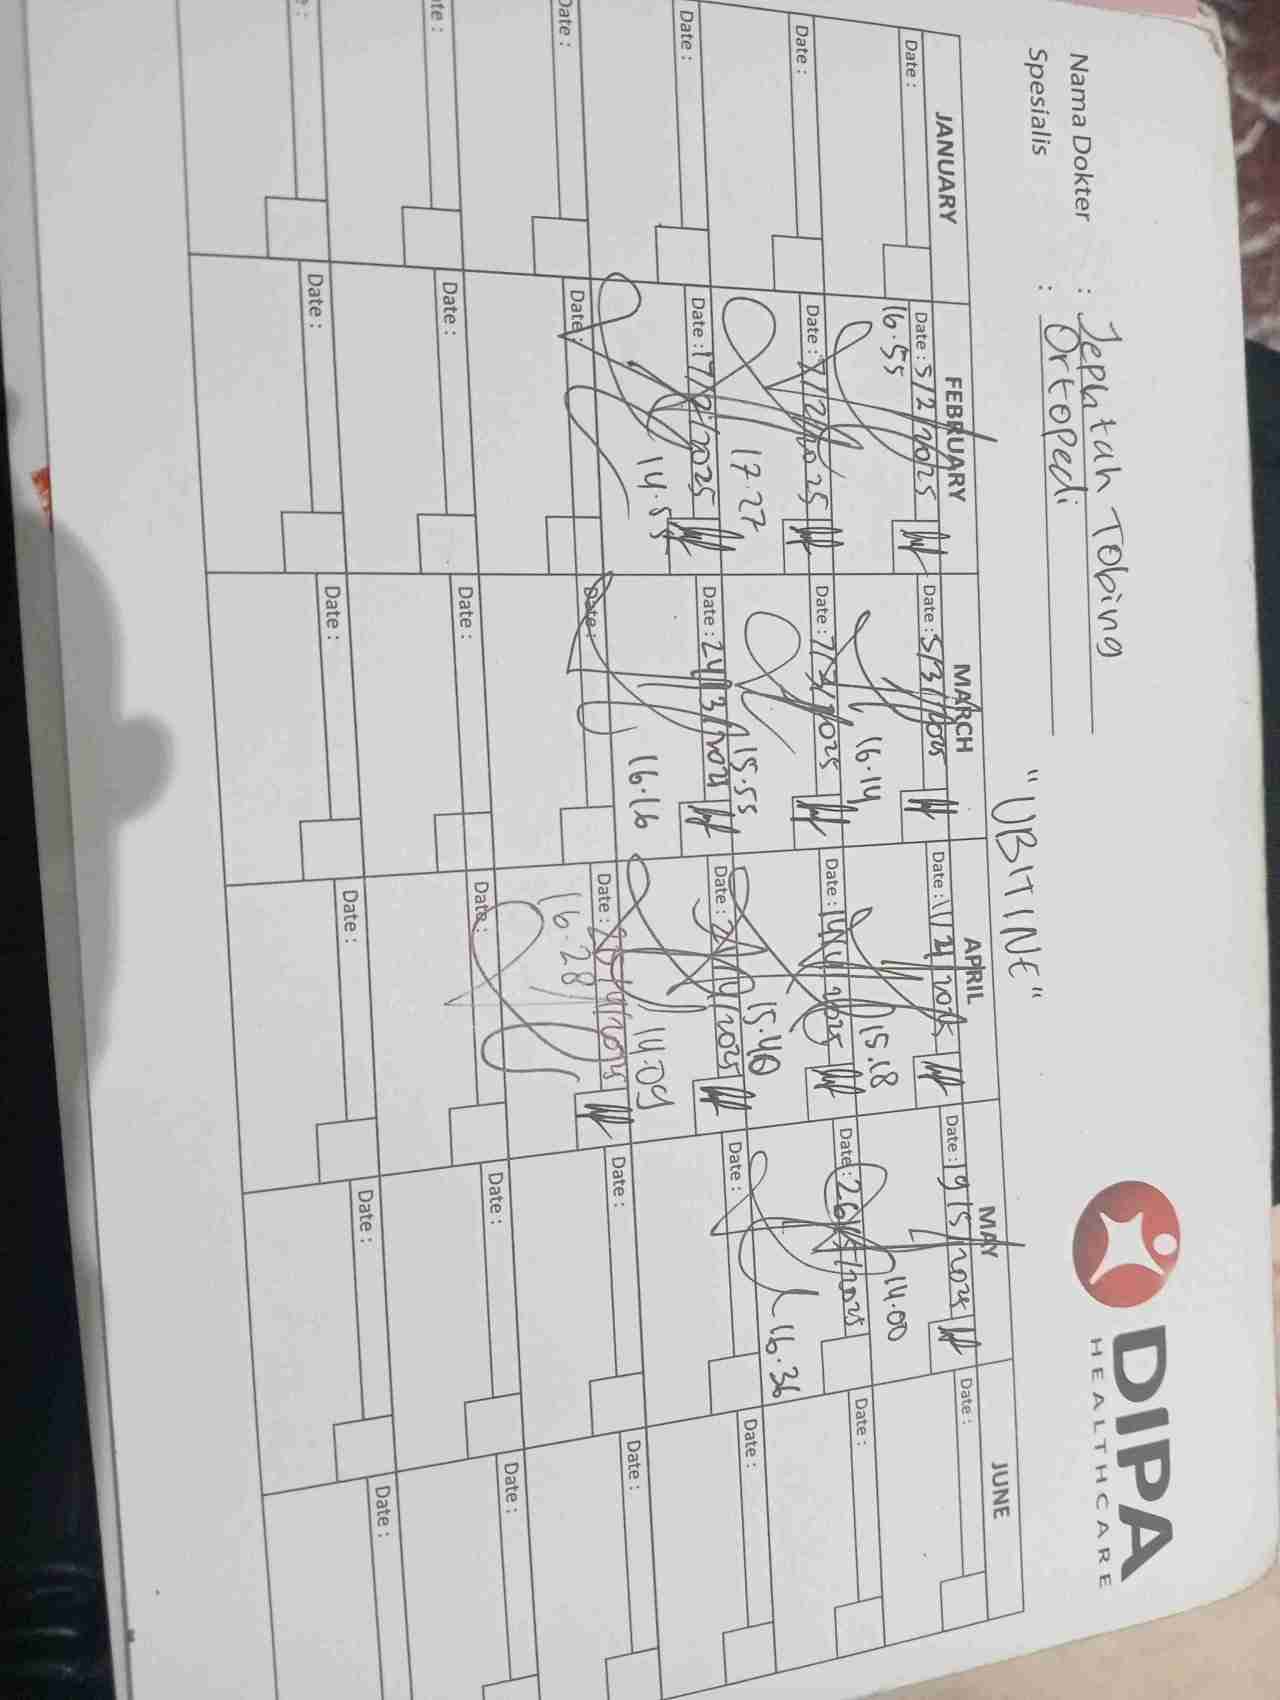 Nama Dokter : Jephtah Tobing
Spesialis : Ortopedi
"UBITINE"
DIPA
HEALTHCARE
JANUARY FEBRUARY MARCH APRIL MAY JUNE
Date : Date : 5/2/2025 Date : 5/3/2025 Date : 11/4/2025 Date : 19/5/2025 Date :
16.55 16.14 15.18 14.00
Date : Date : 7/2/2025 Date : 7/3/2025 Date : 14/4/2025 Date : 26/5/2025 Date :
17.27 15.55 15.40 16.36
Date : Date : 17/2/2025 Date : 24/3/2025 Date : 21/4/2025 Date : Date :
14.55 16.16 14.09
Date : Date : Date : Date : 28/4/2025 Date : Date :
16.28
Date : Date : Date : Date : Date : Date :
Date : Date : Date : Date : Date :